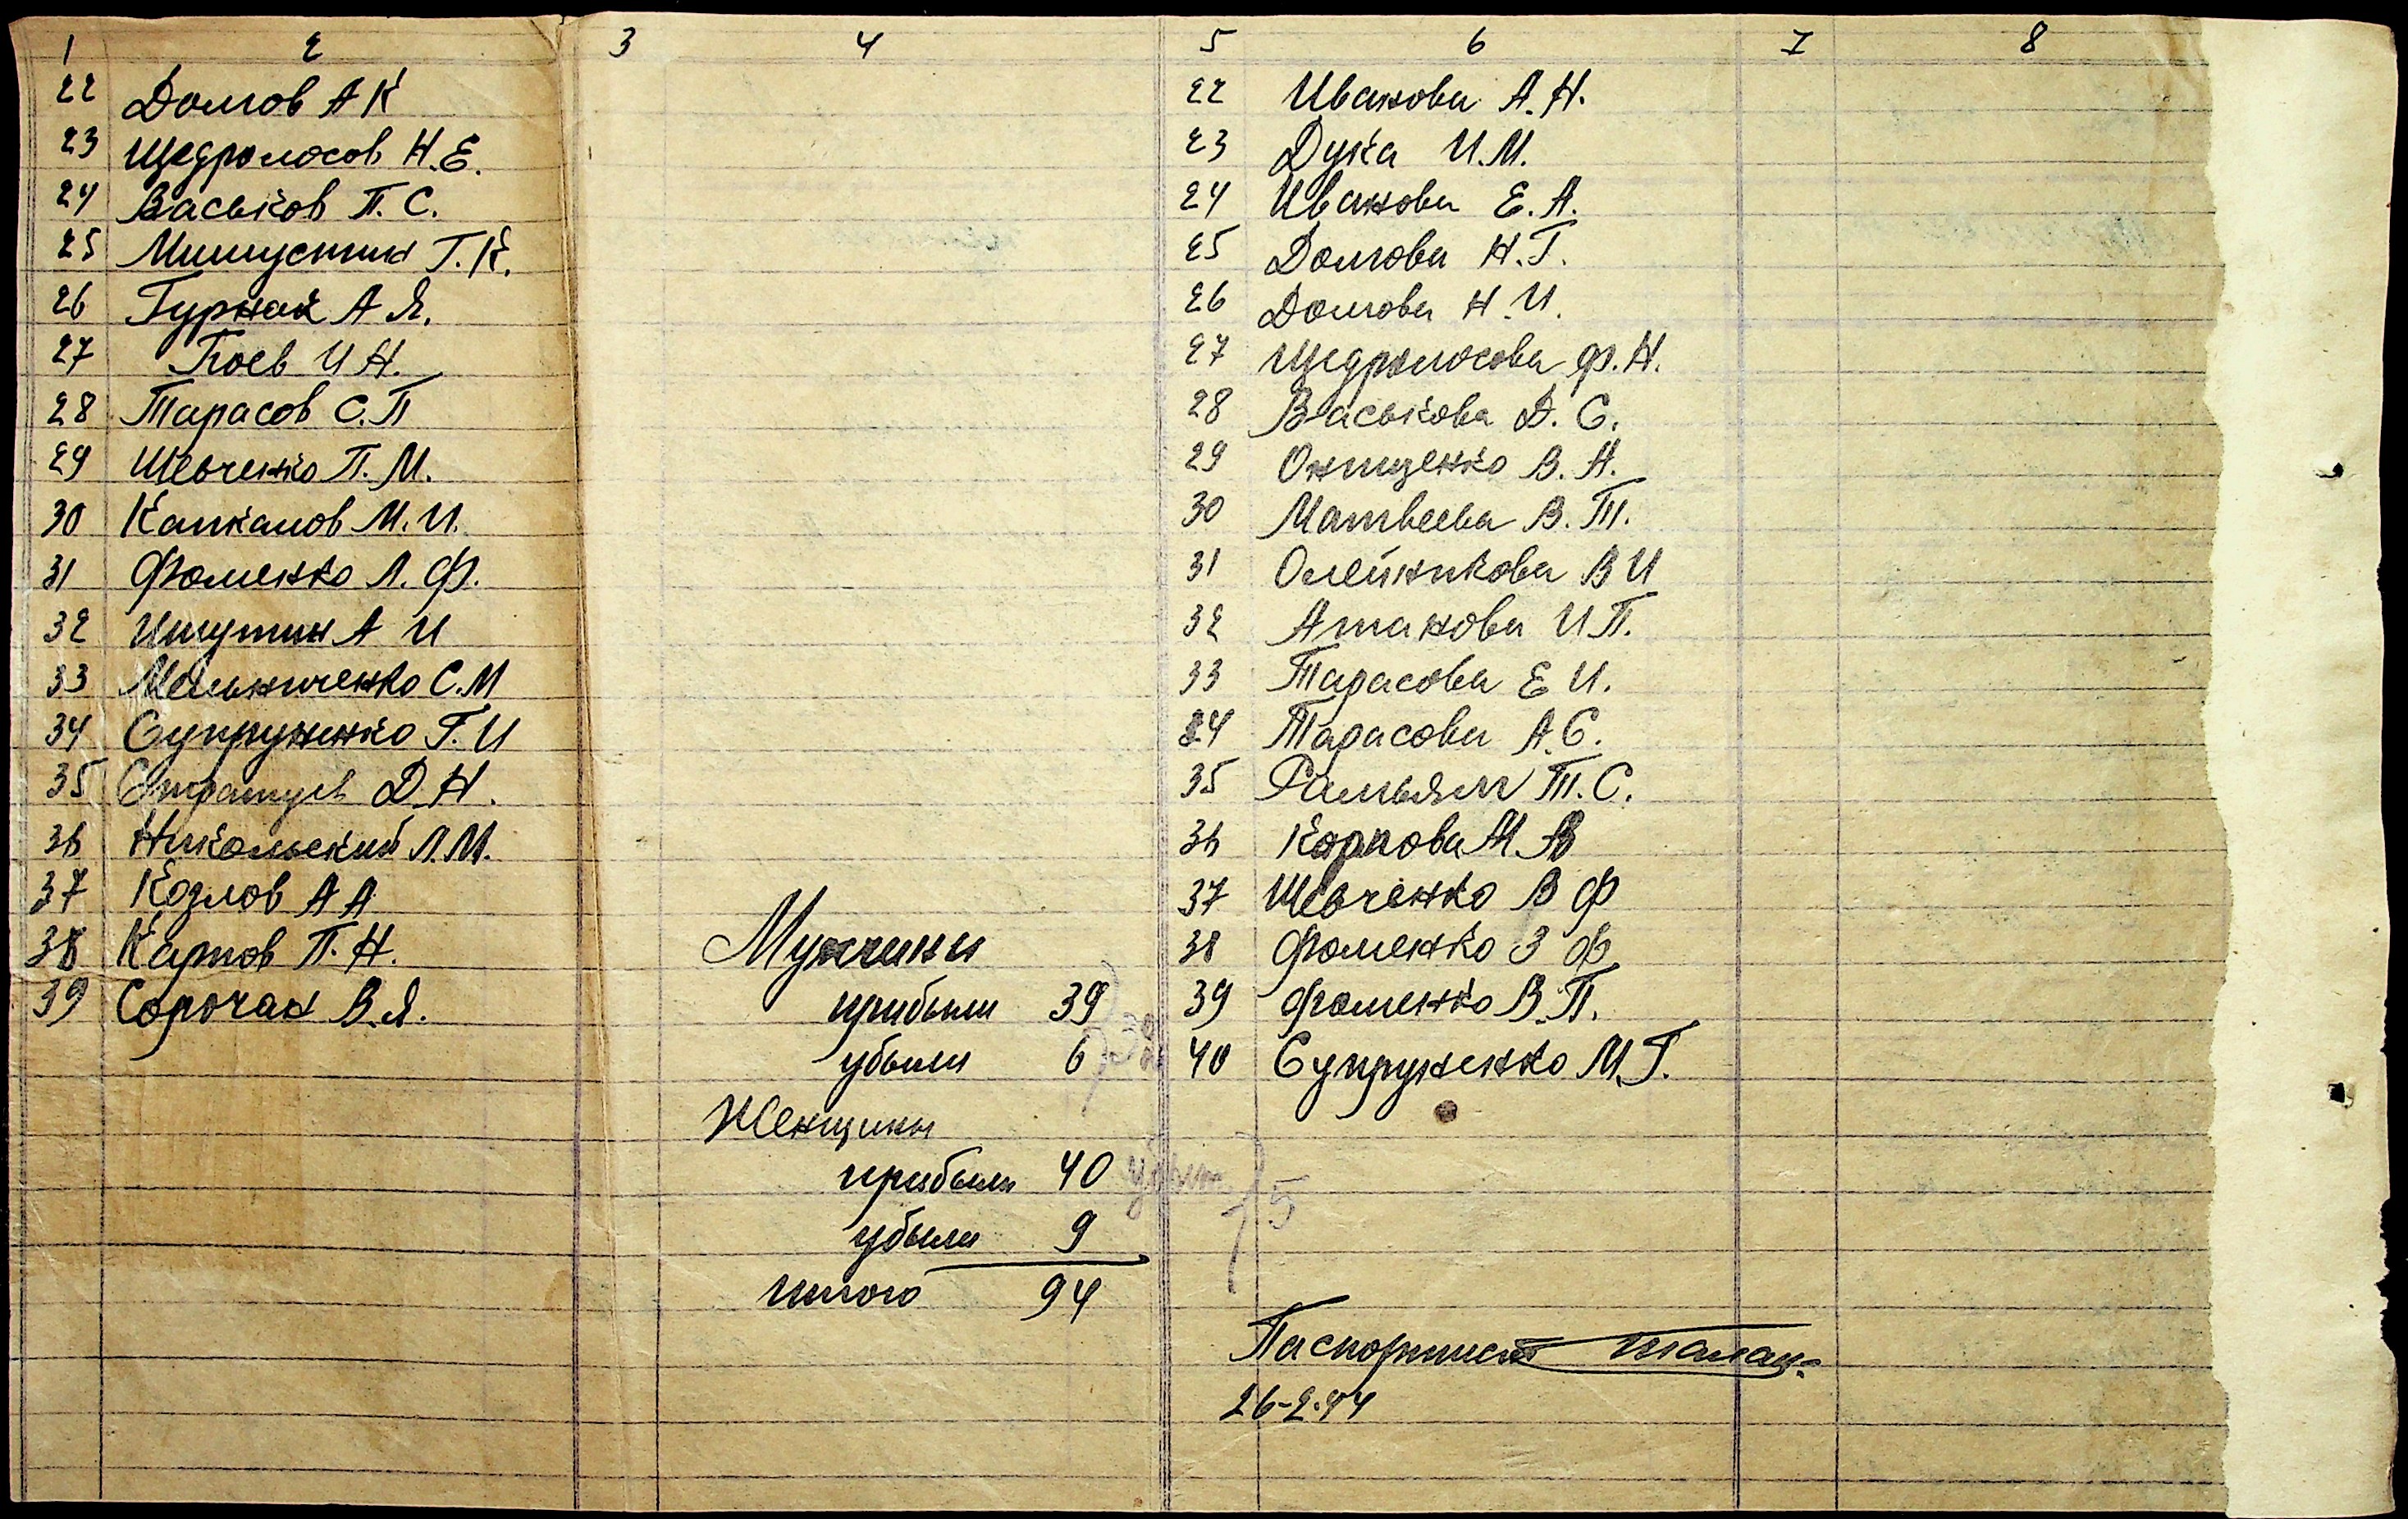 1 2 3 4 5 6 7 8
22 Долгов А К
23 Щедролосов Н.Е.
24 Васьков П.С.
25 Мишустин Г.К.
26 Гурнак А Я.
27 Гоев И Н.
28 Тарасов С.П
29 Шевченко П.М.
30 Капканов М.И.
31 Фоменко Л.Ф.
32 Ишутин А И
33 Мельниченко С.М
34 Супруненко Г.И
35 Д.Н.
36 Никольский Л.М.
37 Козлов А А
38 Карпов П.Н.
39 Сорочан В.Я.
Мужчины
прибыли 39
убыли 6
Женщины
прибыли 40
убыли 9
Итого 94
22 Иванова А.Н.
23 Дука И.М.
24 Иванова Е.А.
25 Долгова Н.Г.
26 Долгова Н.И.
27 Щедролосова Ф.Н.
28 Васькова Д.С.
29 Онищенко В.Н.
30 Матвеева В.Т.
31 Олейникова В И
32 Атанова И П.
33 Тарасова Е И.
34 Тарасова А.С.
35 Т.С.
36 Карпова М.А
37 Шевченко В Ф
38 Фоменко З Ф
39 Фоменко В.П.
40 Супруненко М.Г.
75
Паспортист
26-2.44